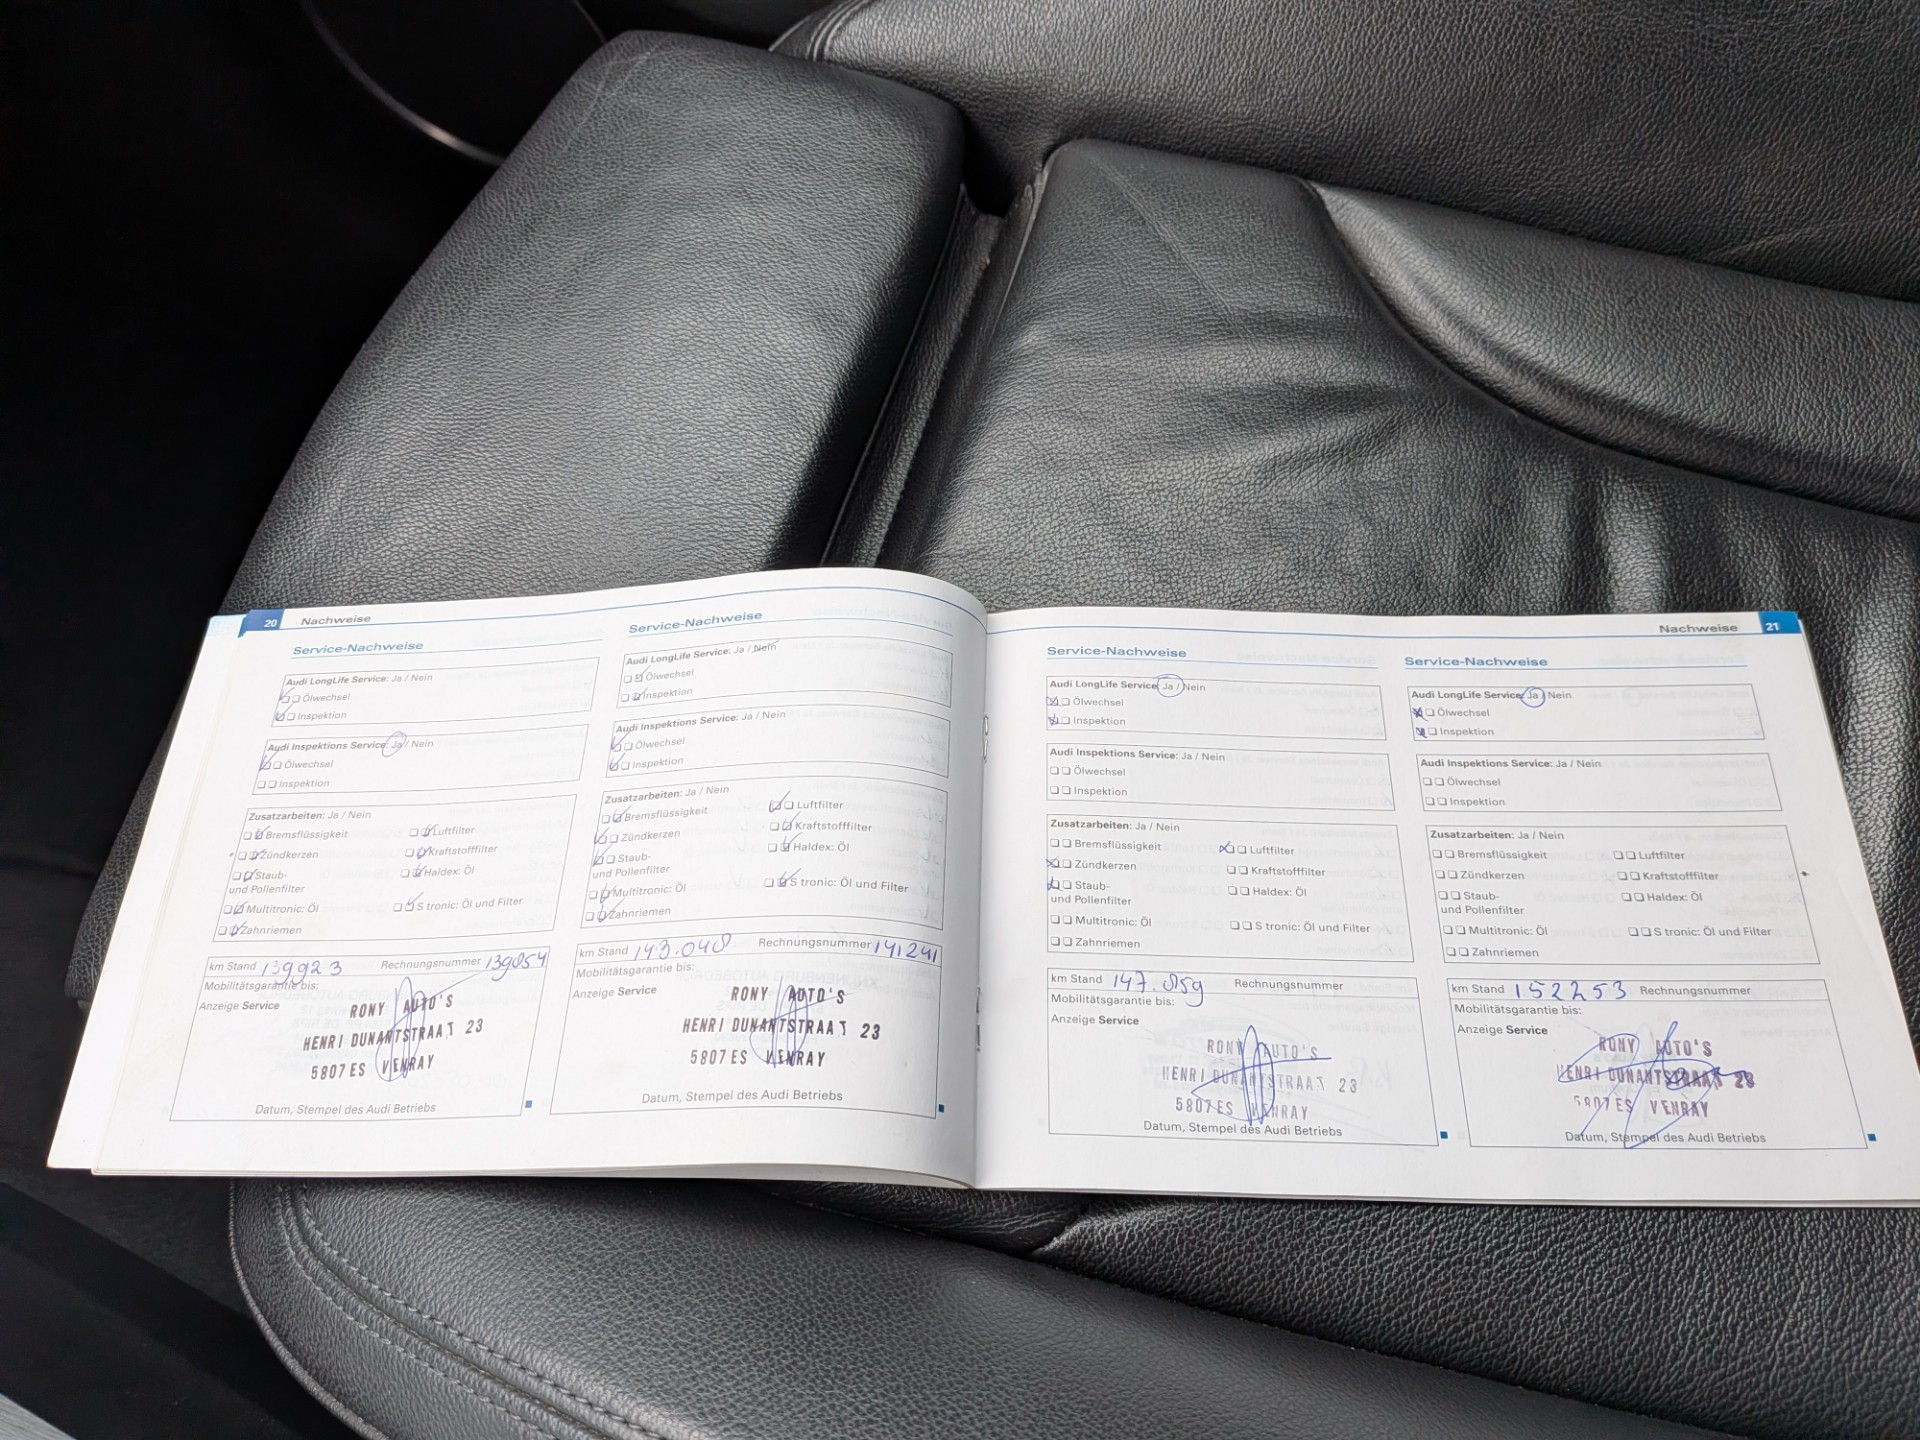 20 Nachweise
Service-Nachweise
Audi LongLife Service: Ja / Nein
Ölwechsel
Inspektion
Audi Inspektions Service: Ja / Nein
Ölwechsel
Inspektion
Zusatzarbeiten: Ja / Nein
Bremsflüssigkeit Luftfilter
Zündkerzen Kraftstofffilter
Staub- Haldex: Öl
und Pollenfilter
Multitronic: Öl S tronic: Öl und Filter
Zahnriemen
km Stand 139923 Rechnungsnummer
Mobilitätsgarantie bis:
Anzeige Service
RONY AUTO'S
HENRI DUNANTSTRAAT 23
5807 ES VENRAY
Datum, Stempel des Audi Betriebs
Service-Nachweise
Audi LongLife Service: Ja / Nein
Ölwechsel
Inspektion
Audi Inspektions Service: Ja / Nein
Ölwechsel
Inspektion
Zusatzarbeiten: Ja / Nein
Bremsflüssigkeit Luftfilter
Zündkerzen Kraftstofffilter
Staub- Haldex: Öl
und Pollenfilter
Multitronic: Öl S tronic: Öl und Filter
Zahnriemen
km Stand 143.048 Rechnungsnummer 141241
Mobilitätsgarantie bis:
Anzeige Service
RONY AUTO'S
HENRI DUNANTSTRAAT 23
5807 ES VENRAY
Datum, Stempel des Audi Betriebs
Nachweise 21
Service-Nachweise
Audi LongLife Service: Ja / Nein
Ölwechsel
Inspektion
Audi Inspektions Service: Ja / Nein
Ölwechsel
Inspektion
Zusatzarbeiten: Ja / Nein
Bremsflüssigkeit Luftfilter
Zündkerzen Kraftstofffilter
Staub- Haldex: Öl
und Pollenfilter
Multitronic: Öl S tronic: Öl und Filter
Zahnriemen
km Stand Rechnungsnummer
Mobilitätsgarantie bis:
Anzeige Service
RONY AUTO'S
HENRI DUNANTSTRAAT 23
5807 ES VENRAY
Datum, Stempel des Audi Betriebs
Service-Nachweise
Audi LongLife Service: Ja / Nein
Ölwechsel
Inspektion
Audi Inspektions Service: Ja / Nein
Ölwechsel
Inspektion
Zusatzarbeiten: Ja / Nein
Bremsflüssigkeit Luftfilter
Zündkerzen Kraftstofffilter
Staub- Haldex: Öl
und Pollenfilter
Multitronic: Öl S tronic: Öl und Filter
Zahnriemen
km Stand 152253 Rechnungsnummer
Mobilitätsgarantie bis:
Anzeige Service
RONY AUTO'S
HENRI DUNANTSTRAAT 23
5807 ES VENRAY
Datum, Stempel des Audi Betriebs